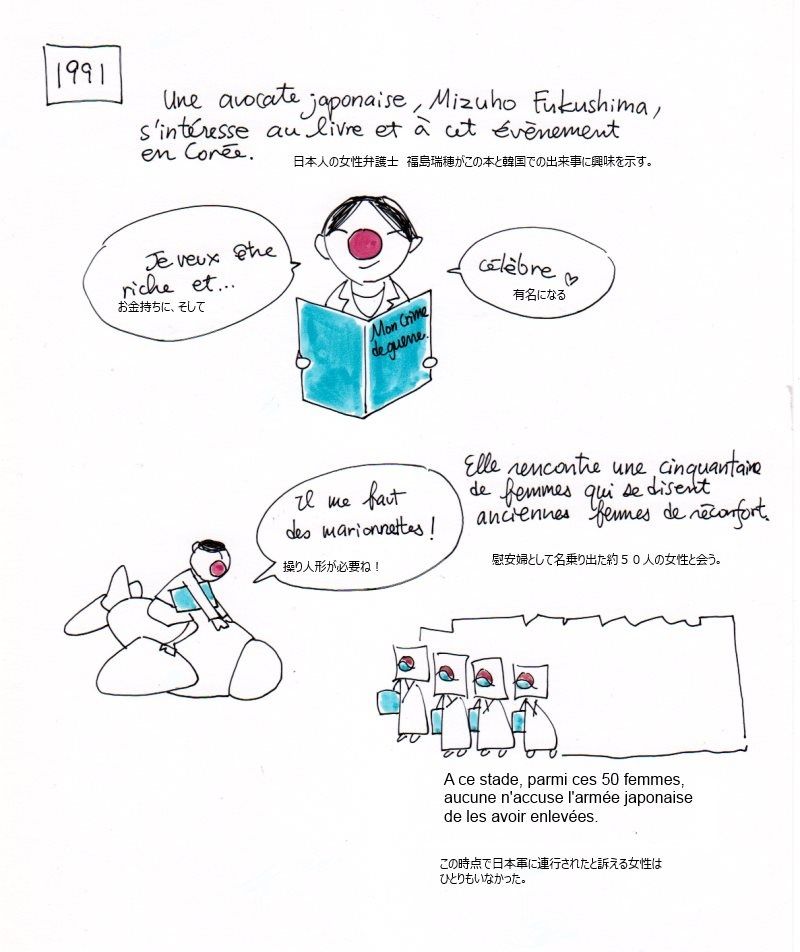 1991
Une avocate japonaise, Mizuho Fukushima,
s'intéresse au livre et à cet évènement
en Corée.
日本人の女性弁護士　福島瑞穂がこの本と韓国での出来事に興味を示す。
Je veux être
riche et...
お金持ちに、そして
célèbre
有名になる
Mon Crime
de guerre.
Elle rencontre une cinquantaine
de femmes qui se disent
anciennes femmes de réconfort.
慰安婦として名乗り出た約５０人の女性と会う。
Il me faut
des marionnettes !
操り人形が必要ね！
A ce stade, parmi ces 50 femmes,
aucune n'accuse l'armée japonaise
de les avoir enlevées.
この時点で日本軍に連行されたと訴える女性は
ひとりもいなかった。